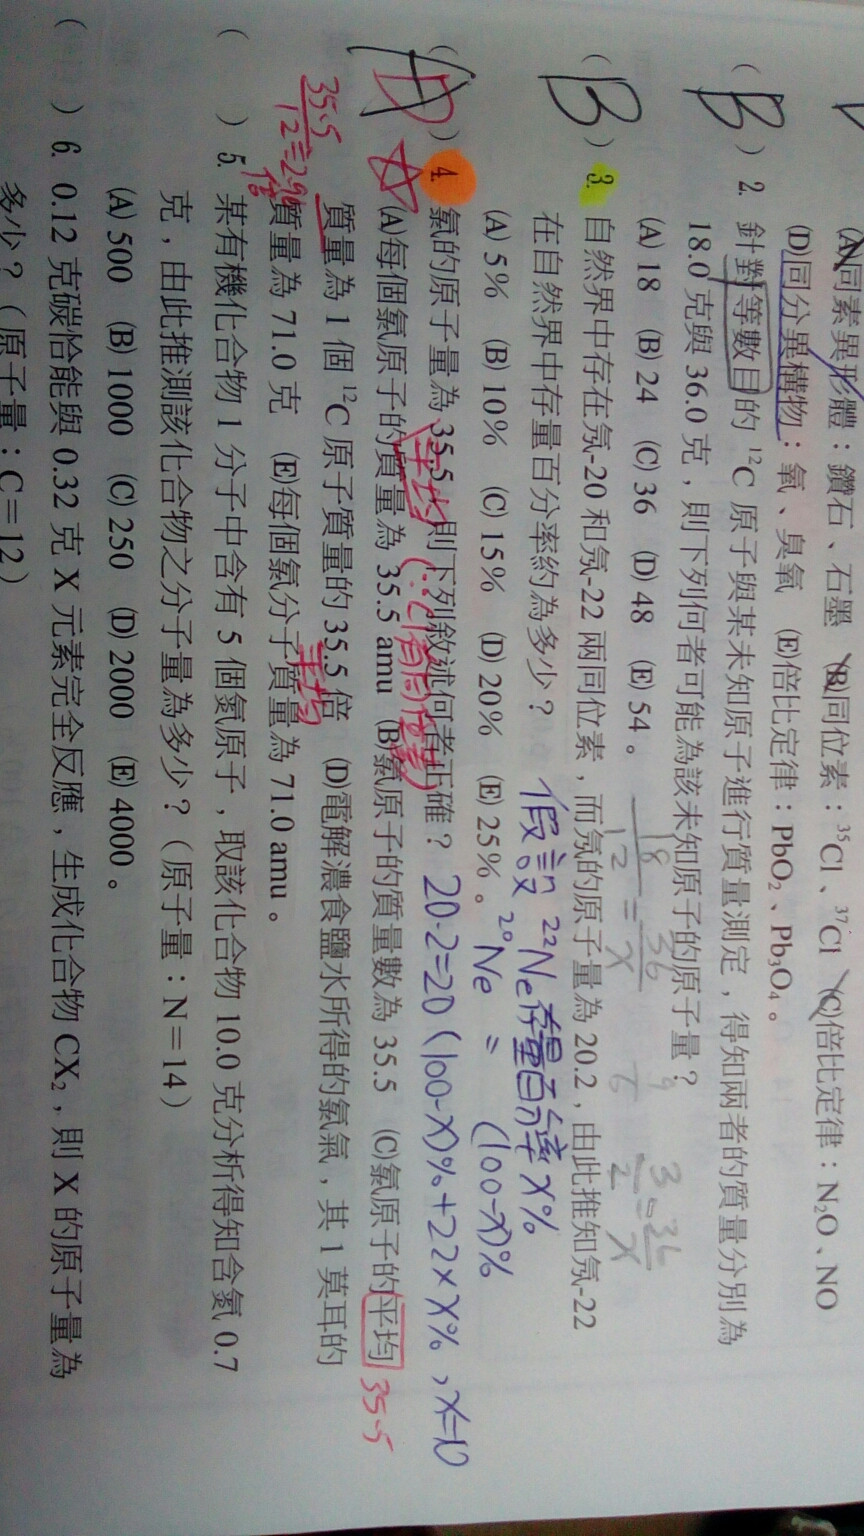 (A)同素異形體：鑽石、石墨 (B)同位素：³⁵Cl、³⁷Cl (C)倍比定律：N₂O、NO
(D)同分異構物：氧、臭氧 (E)倍比定律：PbO₂、Pb₃O₄。
( B ) 2. 針對等數目的 ¹²C 原子與某未知原子進行質量測定，得知兩者的質量分別為
18.0 克與 36.0 克，則下列何者可能為該未知原子的原子量？
(A) 18 (B) 24 (C) 36 (D) 48 (E) 54。
18/12 = 36/x
3/2 = 36/x
( B ) 3. 自然界中存在氖-20 和氖-22 兩同位素，而氖的原子量為 20.2，由此推知氖-22
在自然界中存量百分率約為多少？
(A) 5% (B) 10% (C) 15% (D) 20% (E) 25%。
假設 ²²Ne存量百分率 x%
²⁰Ne 〃 (100-x)%
20.2=20(100-x)%+22×x%，x=10
( D ) 4. 氯的原子量為 35.5，則下列敘述何者正確？
平均 (∵有同位素)
(A)每個氯原子的質量為 35.5 amu (B)氯原子的質量數為 35.5 (C)氯原子的平均
35.5
質量為 1 個 ¹²C 原子質量的 35.5 倍 (D)電解濃食鹽水所得的氯氣，其 1 莫耳的
35.5/12=2.96倍
平均
質量為 71.0 克 (E)每個氯分子質量為 71.0 amu。
( ) 5. 某有機化合物 1 分子中含有 5 個氮原子，取該化合物 10.0 克分析得知含氮 0.7
克，由此推測該化合物之分子量為多少？（原子量：N＝14）
(A) 500 (B) 1000 (C) 250 (D) 2000 (E) 4000。
( ) 6. 0.12 克碳恰能與 0.32 克 X 元素完全反應，生成化合物 CX₂，則 X 的原子量為
多少？（原子量：C＝12）